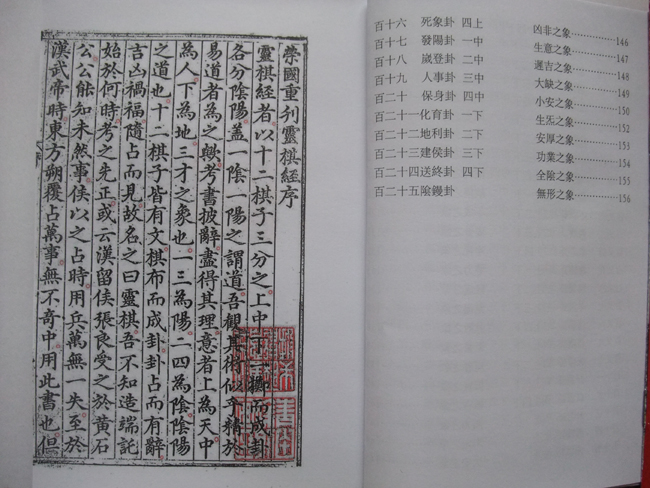 百十六 死象卦 四上 凶非之象………146
百十七 發陽卦 一中 生意之象………147
百十八 嵗登卦 二中 遲吉之象………148
百十九 人事卦 三中 大缺之象………149
百二十 保身卦 四中 小安之象………150
百二十一化育卦 一下 生炁之象………152
百二十二地利卦 二下 安厚之象………153
百二十三建侯卦 三下 功業之象………154
百二十四送終卦 四下 全陰之象………155
百二十五陰鏝卦 無形之象………156
國重刋靈棋經序
靈棋經者以十二棋子三分之上中下一擲而成卦
各分陰陽蓋一陰一陽之謂道吾觀其術似乎精於
易道者為之歟考書披辭盡得其理意者上為天中
為人下為地三才之象也一三為陽二四為陰陰陽
之道也十二棋子皆有文棋布而成卦卦占而有辭
吉凶禍福隨占而見故名之曰靈棋吾不知造端託
始於何時考之先正或云漢留侯張良受之於黃石
公公能知未然事侯以之占時用兵萬無一失至於
漢武帝時東方朔覆占萬事無不奇中用此書也但